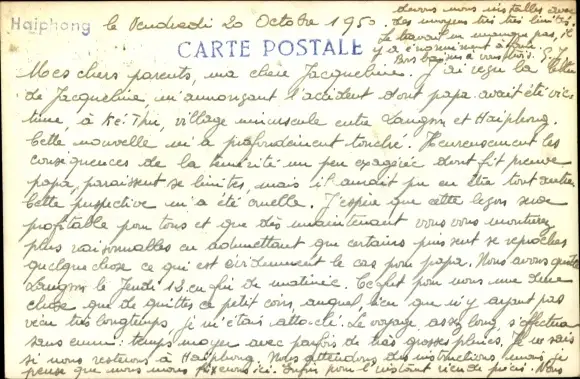 Haiphong le Vendredi 20 Octobre 1950.
CARTE POSTALE
Mes chers parents, ma chère Jacqueline. J'ai reçu la lettre
de Jacqueline, m'annonçant l'accident dont papa avait été vic-
time, à Ké-Thu, village minuscule entre Langson et Haiphong.
Cette nouvelle m'a profondément touché. Heureusement les
conséquences de la témérité un peu exagérée dont fit preuve
papa, paraissent se limiter, mais il aurait pu en être tout autre.
Cette perspective m'a été cruelle. J'espère que cette leçon sera
profitable pour tous et que dès maintenant vous vous montrerez
plus raisonnables en admettant que certains puissent se reprocher
quelque chose ce qui est évidemment le cas pour papa. Nous avons quitté
Langson le Jeudi 12 en fin de matinée. Ce fut pour nous une dure
chose que de quitter ce petit coin auquel, bien que n'y ayant pas
vécu très longtemps je m'étais attaché. Le voyage assez long, s'effectua
sans ennui : temps moyen avec parfois de très grosses pluies. Je ne sais
si nous resterons à Haiphong. Nous attendons des instructions, mais je
pense que nous nous fixerons ici. Enfin pour l'instant rien de précis. Nous
devons nous installer avec
des moyens très très limités.
Le travail ne manque pas, il
y a énormément à faire.
Bons baisers à vous trois.